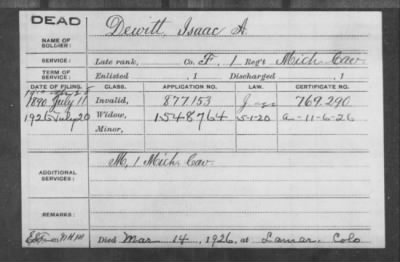 DEAD
NAME OF SOLDIER: Dewitt, Isaac A.
SERVICE: Late rank, Co. F, 1 Reg't Mich Cav.
TERM OF SERVICE: Enlisted , 1 Discharged , 1
DATE OF FILING. CLASS. APPLICATION NO. LAW. CERTIFICATE NO.
1890 July 11 Invalid, 877153 769.290
1926 July 20 Widow, 1548764 5-1-20 a-11-6-26
Minor,
ADDITIONAL SERVICES: M, 1 Mich. Cav.
REMARKS:
Died Mar 14, 1926, at Lamar, Colo